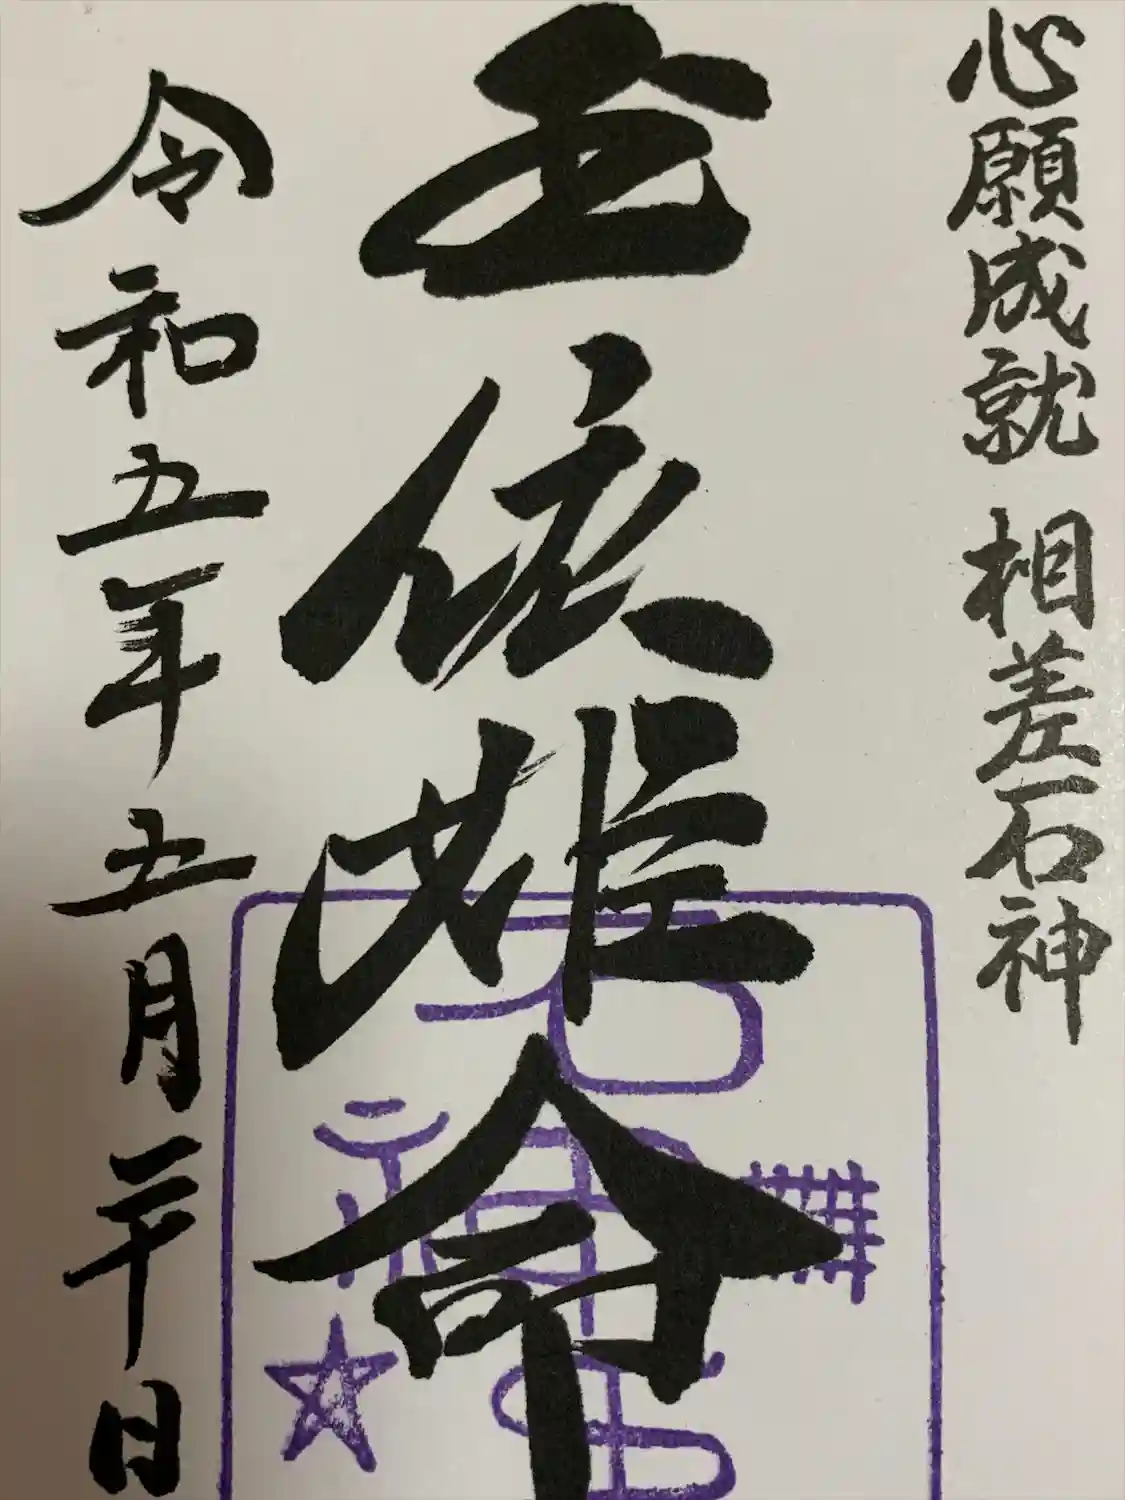 心願成就 相差石神
玉依姫命
令和五年五月二十日
石神